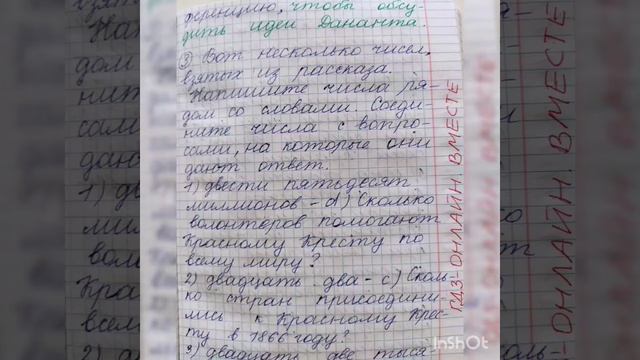 ференцию, чтобы обсу-
дить идеи Дананта.
③ Вот несколько чисел,
взятых из рассказа.
Напишите числа ря-
дом со словами. Соеди-
ните числа с вопро-
сами, на которые они
дают ответ.
1) двести пятьдесят
миллионов - d) Сколько
волонтеров помогают
Красному Кресту по
всему миру?
2) двадцать два - c) Сколь-
ко стран присоедини-
лись к Красному Крес-
ту в 1866 году?
3) двадцать две тыся-
ГДЗ-ОНЛАЙН. ВМЕСТЕ
InShOt